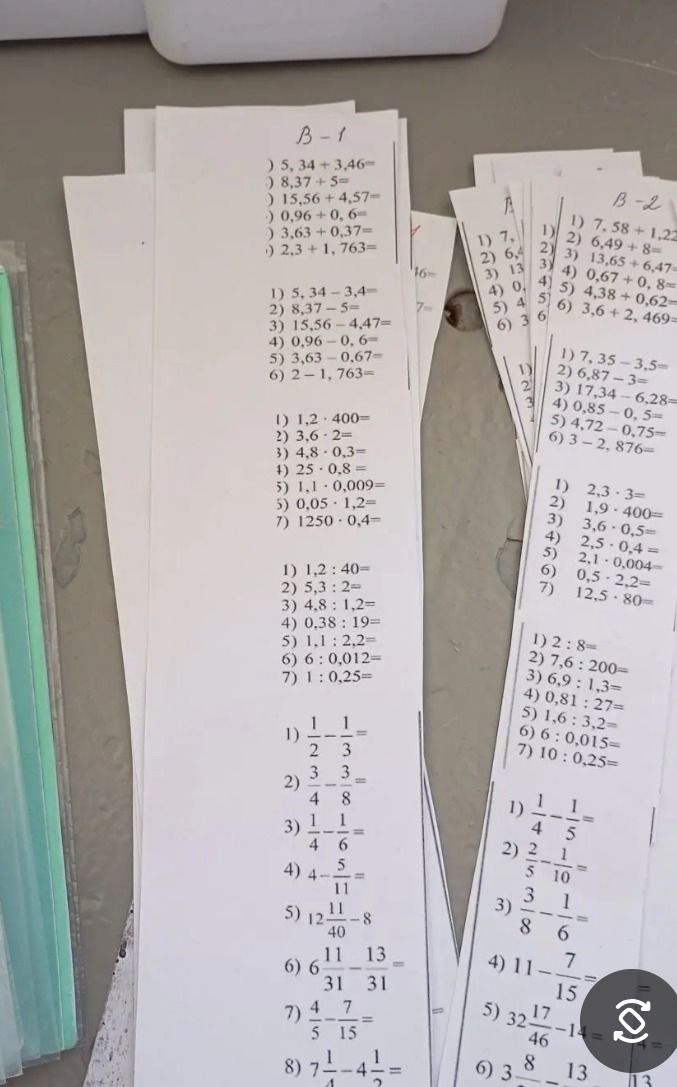 В-1
) 5, 34 + 3,46=
) 8,37 + 5=
) 15,56 + 4,57=
) 0,96 + 0, 6=
) 3,63 + 0,37=
) 2,3 + 1, 763=
1) 5, 34 – 3,4=
2) 8,37 – 5=
3) 15,56 – 4,47=
4) 0,96 – 0, 6=
5) 3,63 – 0,67=
6) 2 – 1, 763=
1) 1,2 · 400=
2) 3,6 · 2=
3) 4,8 · 0,3=
4) 25 · 0,8 =
5) 1,1 · 0,009=
5) 0,05 · 1,2=
7) 1250 · 0,4=
1) 1,2 : 40=
2) 5,3 : 2=
3) 4,8 : 1,2=
4) 0,38 : 19=
5) 1,1 : 2,2=
6) 6 : 0,012=
7) 1 : 0,25=
1) 1/2 – 1/3 =
2) 3/4 – 3/8 =
3) 1/4 – 1/6 =
4) 4 – 5/11 =
5) 12 11/40 – 8
6) 6 11/31 – 13/31 =
7) 4/5 – 7/15 =
8) 7 1/4 – 4 1/2 =
16=
7=
1) 7,
2) 6,4
3) 13
4) 0,
5) 4
6) 3
1)
2)
3)
4)
5)
6
1)
2
3
В-2
1) 7, 58 + 1,22
2) 6,49 + 8=
3) 13,65 + 6,47=
4) 0,67 + 0, 8=
5) 4,38 + 0,62=
6) 3,6 + 2, 469=
1) 7, 35 – 3,5=
2) 6,87 – 3=
3) 17,34 – 6,28=
4) 0,85 – 0, 5=
5) 4,72 – 0,75=
6) 3 – 2, 876=
1) 2,3 · 3=
2) 1,9 · 400=
3) 3,6 · 0,5=
4) 2,5 · 0,4 =
5) 2,1 · 0,004=
6) 0,5 · 2,2=
7) 12,5 · 80=
1) 2 : 8=
2) 7,6 : 200=
3) 6,9 : 1,3=
4) 0,81 : 27=
5) 1,6 : 3,2=
6) 6 : 0,015=
7) 10 : 0,25=
1) 1/4 – 1/5 =
2) 2/5 – 1/10 =
3) 3/8 – 1/6 =
4) 11 – 7/15 =
5) 32 17/46 – 14 =
6) 3 8 – 13